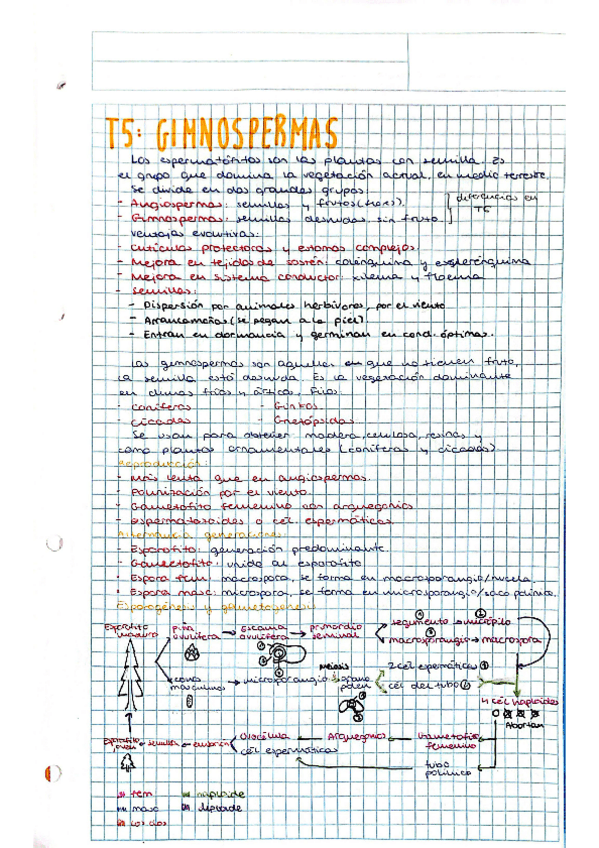 T5: GIMNOSPERMAS
Las espermatófitas son las plantas con semilla. Es
el grupo que domina la vegetación actual, en medio terrestre.
Se divide en dos grandes grupos:
- Angiospermas: semillas y frutos (flores). diferencias en
- Gimnospermas: semillas desnudas, sin fruto. T6
Ventajas evolutivas:
- Cutículas protectoras y estomas complejos.
- Mejora en tejidos de sostén: colénquima y esclerénquima
- Mejora en sistema conductor: xilema y floema
- Semillas:
- Dispersión por animales herbívoros, por el viento
- Arrancamoños (se pegan a la piel)
- Entran en dormancia y germinan en cond. óptimas.
Las gimnospermas son aquellas en que no tienen fruto,
la semilla está desnuda. Es la vegetación dominante
en climas fríos y árticos. Filos:
- Coníferas - Ginkos
- Cicadas - Gnetópsidas
Se usan para obtener madera, celulosa, resinas y
como plantas ornamentales (coníferas y cicadas)
Reproducción:
- Más lenta que en angiospermas.
- Polinización por el viento.
- Gametofito femenino con arquegonios
- Espermatozoides o cél. espermáticas.
Alternancia generaciones:
- Esporofito: generación predominante.
- Gametofito: unido al esporofito
- Espora fem: macrospora, se forma en macrosporangio/nucela.
- Espora masc: microspora, se forma en microsporangio/saco polínico.
Esporogénesis y gametogénesis
Esporofito maduro
piña ovulífera
Escama ovulífera
primordio seminal
tegumento
micrópilo
macrosporangio
macrospora
conos masculinos
microsporangio
Meiosis
grano polen
2 cél espermáticas
cél del tubo
4 cél haploides
Abortan
Esporofito joven
semilla
embrión
Ovocélula
cél espermáticas
Arquegonios
Gametofito femenino
tubo polínico
fem haploide
masc diploide
los dos